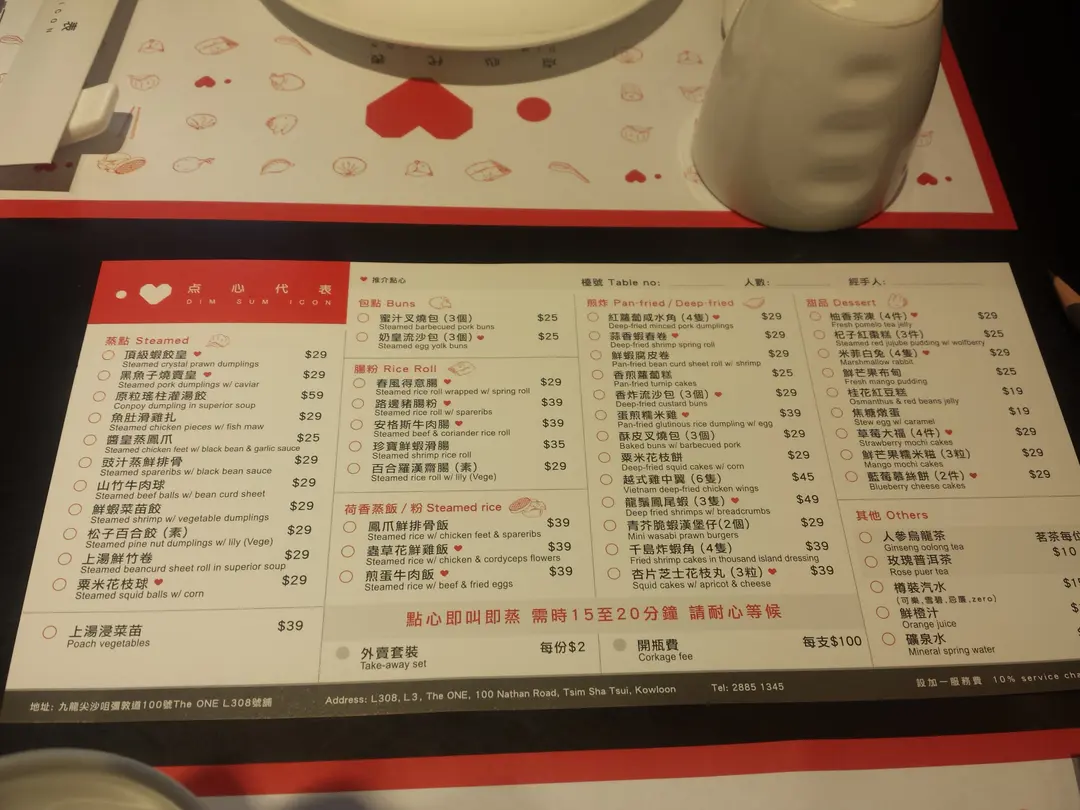 点心代表
DIM SUM ICON
推介點心
檯號 Table no:
人數:
經手人:
蒸點 Steamed
頂級蝦餃皇 $29
Steamed crystal prawn dumplings
黑魚子燒賣皇 $29
Steamed pork dumplings w/ caviar
原粒瑤柱灌湯餃 $59
Conpoy dumpling in superior soup
魚肚滑雞扎 $29
Steamed chicken pieces w/ fish maw
醬皇蒸鳳爪 $25
Steamed chicken feet w/ black bean & garlic sauce
豉汁蒸鮮排骨 $29
Steamed spareribs w/ black bean sauce
山竹牛肉球 $29
Steamed beef balls w/ bean curd sheet
鮮蝦菜苗餃 $29
Steamed shrimp w/ vegetable dumplings
松子百合餃（素） $29
Steamed pine nut dumplings w/ lily (Vege)
上湯鮮竹卷 $29
Steamed beancurd sheet roll in superior soup
粟米花枝球 $29
Steamed squid balls w/ corn
上湯浸菜苗 $39
Poach vegetables
包點 Buns
蜜汁叉燒包（3個） $25
Steamed barbecued pork buns
奶皇流沙包（3個） $25
Steamed egg yolk buns
腸粉 Rice Roll
春風得意腸 $29
Steamed rice roll wrapped w/ spring roll
路邊豬腸粉 $39
Steamed rice roll w/ spareribs
安格斯牛肉腸 $39
Steamed beef & coriander rice roll
珍寶鮮蝦滑腸 $35
Steamed shrimp rice roll
百合羅漢齋腸（素） $29
Steamed rice roll w/ lily (Vege)
荷香蒸飯 / 粉 Steamed rice
鳳爪鮮排骨飯 $39
Steamed rice w/ chicken feet & spareribs
蟲草花鮮雞飯 $39
Steamed rice w/ chicken & cordyceps flowers
煎蛋牛肉飯 $39
Steamed rice w/ beef & fried eggs
煎炸 Pan-fried / Deep-fried
紅蘿蔔咸水角（4隻） $29
Deep-fried minced pork dumplings
蒜香蝦春卷 $29
Deep-fried shrimp spring roll
鮮蝦腐皮卷 $29
Pan-fried bean curd sheet roll w/ shrimp
香煎蘿蔔糕 $25
Pan-fried turnip cakes
香炸流沙包（3個） $29
Deep-fried custard buns
蛋煎糯米雞 $39
Pan-fried glutinous rice dumpling w/ egg
酥皮叉燒包（3個） $29
Baked buns w/ barbecued pork
粟米花枝餅 $29
Deep-fried squid cakes w/ corn
越式雞中翼（6隻） $45
Vietnam deep-fried chicken wings
龍鬚鳳尾蝦（3隻） $49
Deep fried shrimps w/ breadcrumbs
青芥脆蝦漢堡仔(2個) $29
Mini wasabi prawn burgers
千島炸蝦角（4隻） $39
Fried shrimp cakes in thousand island dressing
杏片芝士花枝丸（3粒） $39
Squid cakes w/ apricot & cheese
甜品 Dessert
柚香茶凍（4件） $29
Fresh pomelo tea jelly
杞子紅棗糕（3件） $25
Steamed red jujube pudding w/ wolfberry
米菲白兔（4隻） $29
Marshmallow rabbit
鮮芒果布甸 $25
Fresh mango pudding
桂花紅豆糕 $19
Osmanthus & red beans jelly
焦糖燉蛋 $19
Stew egg w/ caramel
草莓大福（4件） $29
Strawberry mochi cakes
鮮芒果糯米糍（3粒） $29
Mango mochi cakes
藍莓慕絲餅（2件） $29
Blueberry cheese cakes
其他 Others
人參烏龍茶 茗茶每位
Ginseng oolong tea $10
玫瑰普洱茶
Rose puer tea
樽裝汽水
(可樂,雪碧,忌廉,zero)
鮮橙汁
Orange juice
礦泉水
Mineral spring water
點心即叫即蒸 需時15至20分鐘 請耐心等候
外賣套裝 每份$2
Take-away set
開瓶費 每支$100
Corkage fee
地址: 九龍尖沙咀彌敦道100號The ONE L308號舖
Address: L308, L3, The ONE, 100 Nathan Road, Tsim Sha Tsui, Kowloon
Tel: 2885 1345
設加一服務費 10% service